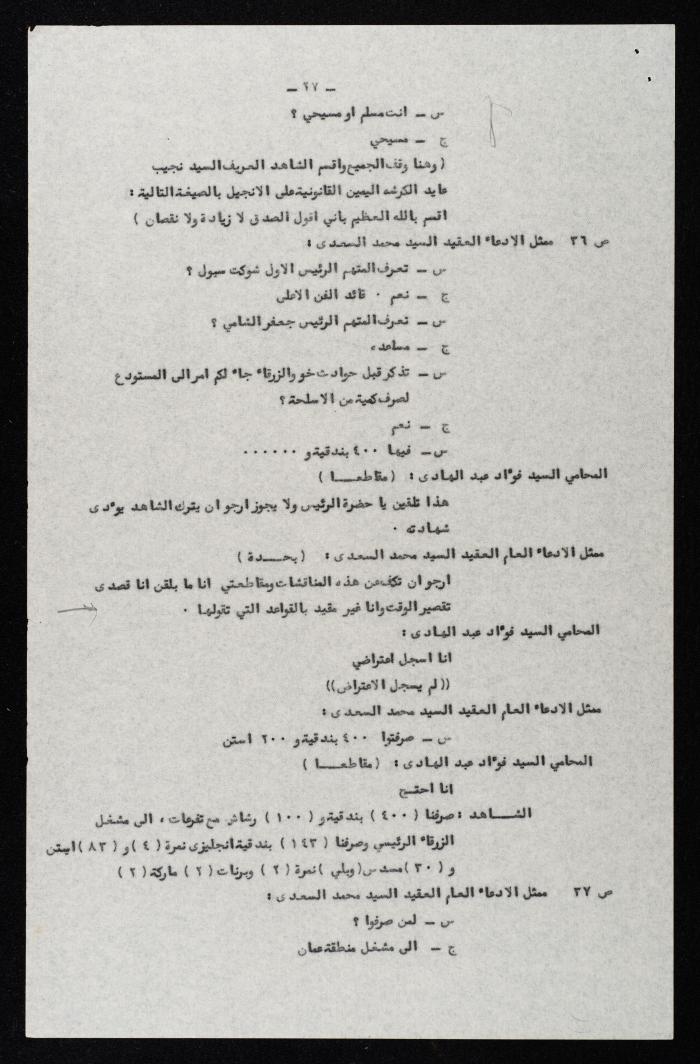 — ٢٧ —
س — انت مسلم او مسيحي ؟
ج — مسيحي
( وهنا وقف الجميع واقسم الشاهد العريف السيد نجيب
عايد الكرشه اليمين القانونية على الانجيل بالصيغة التالية :
اقسم بالله العظيم باني اقول الصدق لا زيادة ولا نقصان )
ص ٣٦ ممثل الادعاء العقيد السيد محمد السعدى :
س — تعرف المتهم الرئيس الاول شوكت سبول ؟
ج — نعم ٠ قائد الفن الاعلى
س — تعرف المتهم الرئيس جعفر الشامي ؟
ج — مساعده
س — تذكر قبل حوادث خو والزرقاء جاء لكم امر الى المستودع
لصرف كمية من الاسلحة ؟
ج — نعم
س — فيها ٤٠٠ بندقية و ٠٠٠٠٠٠
المحامي السيد فؤاد عبد الهادى : ( مقاطعـــا )
هذا تلقين يا حضرة الرئيس ولا يجوز ارجو ان يترك الشاهد يؤدى
شهادته ٠
ممثل الادعاء العام العقيد السيد محمد السعدى : ( بحـــدة )
ارجو ان تكف عن هذه المناقشات ومقاطعتي انا ما بلقن انا قصدى
تقصير الوقت وانا غير مقيد بالقواعد التي تقولها ٠
المحامي السيد فؤاد عبد الهادى :
انا اسجل اعتراضي
(( لم يسجل الاعتراض))
ممثل الادعاء العام العقيد السيد محمد السعدى :
س — صرفتوا ٤٠٠ بندقية و ٢٠٠ استن
المحامي السيد فؤاد عبد الهادى : ( مقاطعـــا )
انا احتــج
الشـــاهد : صرفنا ( ٤٠٠ ) بندقية و ( ١٠٠ ) رشاش مع تفرعات ، الى مشغل
الزرقاء الرئيسي وصرفنا ( ١٤٣ ) بندقية انجليزى نمرة ( ٤ ) و ( ٨٣ ) استن
و ( ٣٠ ) مسدس ( وبلي ) نمرة ( ٢ ) وبرنات ( ٢ ) ماركة ( ٢ )
ص ٣٧ ممثل الادعاء العام العقيد السيد محمد السعدى :
س — لمن صرفوا ؟
ج — الى مشغل منطقة عمان